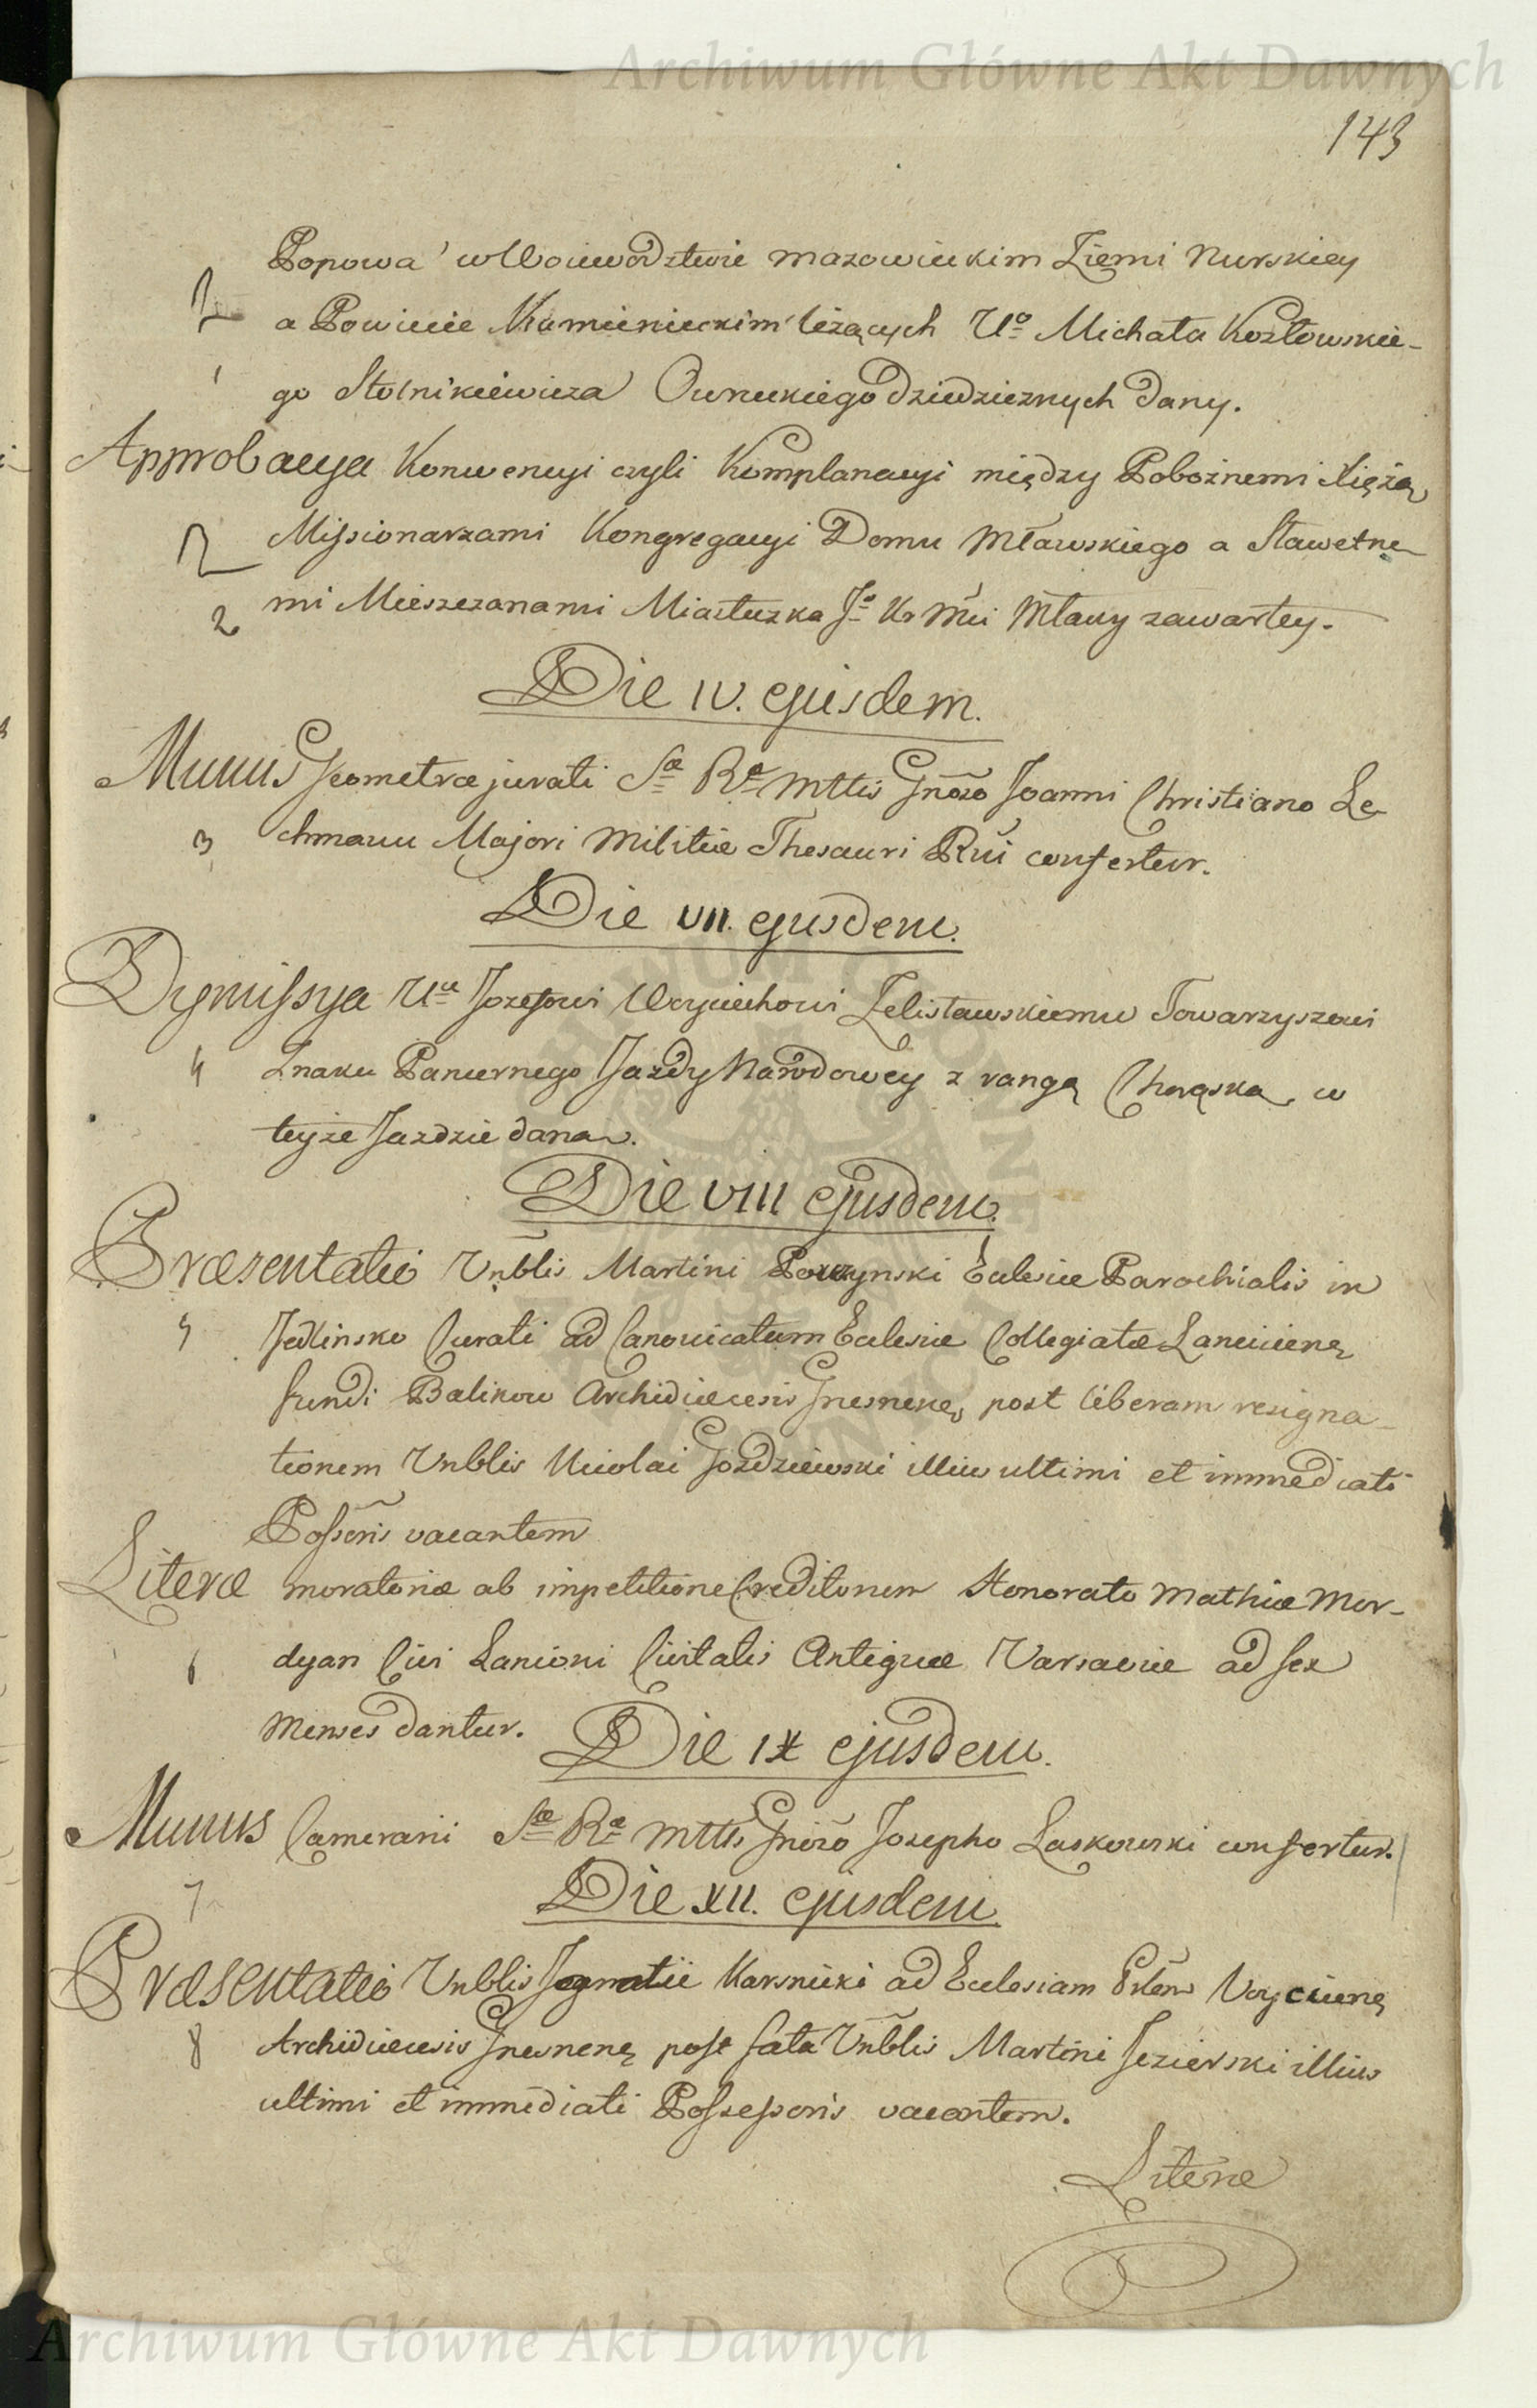 Archiwum Główne Akt Dawnych
143
Popowa w Woiewodztwie mazowieckim Ziemi Nurskiey
a Powiecie Kamienieckim leżących Uo Michała Kozłowskie-
1
go Stolnikiewicza Owruckiego dziedzicznych dany.
Approbacya Konwencyi czyli Komplanacyi między Pobożnemi Xiężą
Missionarzami Kongregacyi Domu Mławskiego a Sławetne
2
mi Mieszczanami Miasteczka Jo K Mci Mławy zawartey.
Die IV. ejusdem.
Munus Geometræ jurati Sæ Ræ Mttis Gnoso Joanni Christiano Le-
3
chmann Majori Militiæ Thesauri Rni confertur.
Die VII. ejusdem.
Dymissya Uu Jozefowi Woyciechowi Zelisławskiemu Towarzyszowi
4
Znaku Pancernego Jazdy Narodowey z rangą Chorąską w
teyże Jazdzie dana.
Die VIII ejusdem.
Præsentatio Vnblis Martini Eclesiæ Parochialis in
5
Jedlinsko Curati ad Canonicatum Eclesiæ Collegiatæ Lanciciens
fundi Balikow Archidiæcesis Gnesnens post liberam resigna-
tionem Vnblis Nicolai Gozdziewski illius ultimi et immediati
Possoris vacantem
Literæ moratoriæ ab impetitione Creditorum Honorato Mathiæ Mor-
6
dyan Civi Lanioni Civitatis Antiquæ Varsaviæ ad sex
Menses dantur.
Die IX ejusdem.
Munus Camerarii Sæ Ræ Mttis Gnoso Josepho Laskowski confertur.
7
Die XII. ejusdem
Præsentatio Vnblis Ignatii Karsnicki ad Eclesiam Prlem Woyciciens
8
Archidiæcesis Gnesnens post fata Vnblis Martini Jezierski illius
ultimi et immediati Possessoris vacantem.
Literæ
Archiwum Główne Akt Dawnych